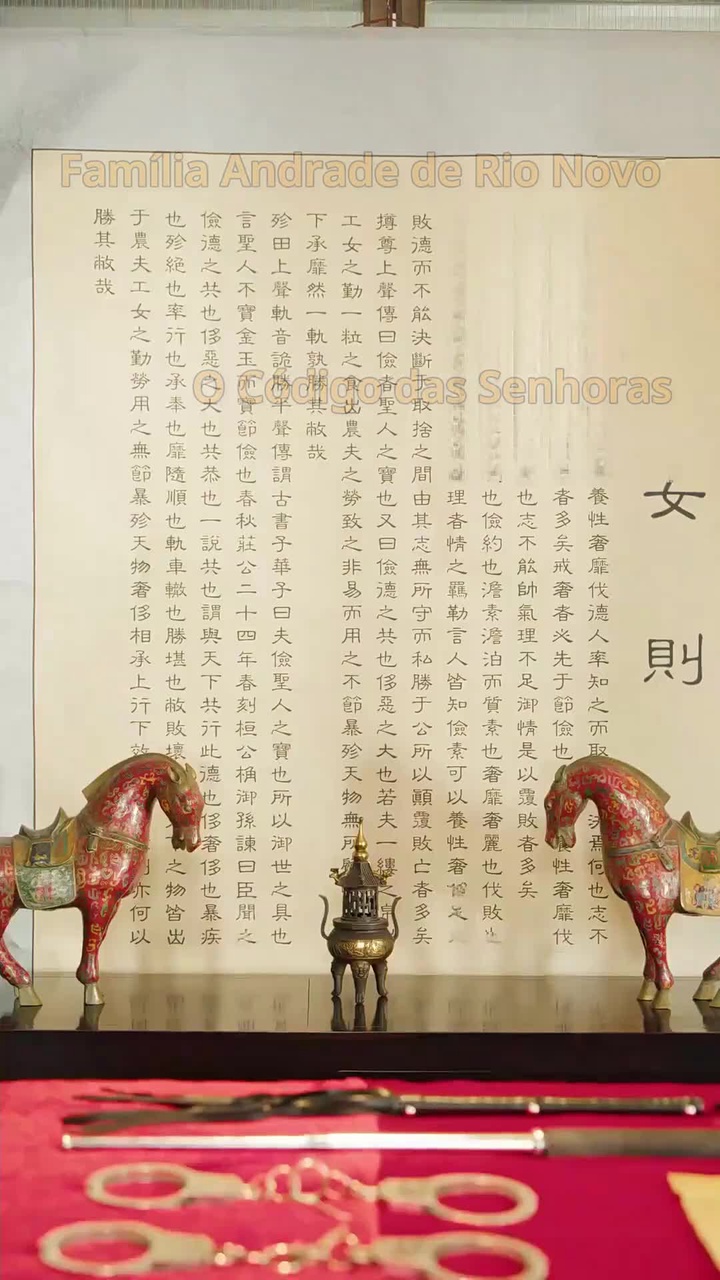 Família Andrade de Rio Novo
O Código das Senhoras
女則
養性奢靡伐德人率知之而取決焉何也志不
者多矣戒奢者必先于節儉也養性奢靡伐
也志不能帥氣理不足御情是以覆敗者多矣
也儉約也澹素澹泊而質素也奢靡奢麗也伐敗也
理者情之羈勒言人皆知儉素可以養性奢
敗德而不能決斷于取捨之間由其志無所守而私勝于公所以顛覆敗亡者多矣
撙尊上聲傳曰儉者聖人之寶也又曰儉德之共也侈惡之大也若夫一縷之帛
工女之勤一粒之食出農夫之勞致之非易而用之不節暴殄天物無所
下承靡然一軌孰勝其敝哉
殄田上聲軌音詭勝平聲傳謂古書子華子曰夫儉聖人之寶也所以御世之具也
言聖人不寶金玉而寶節儉也春秋莊公二十四年春刻桓公桷御孫諫曰臣聞之
儉德之共也侈惡之大也共恭也一說共也謂與天下共行此德也侈奢侈也暴疾
也殄絕也率行也承奉也靡隨順也軌車轍也勝堪也敝敗壞之物皆出
于農夫工女之勤勞用之無節暴殄天物奢侈相承上行下效亦何以
勝其敝哉